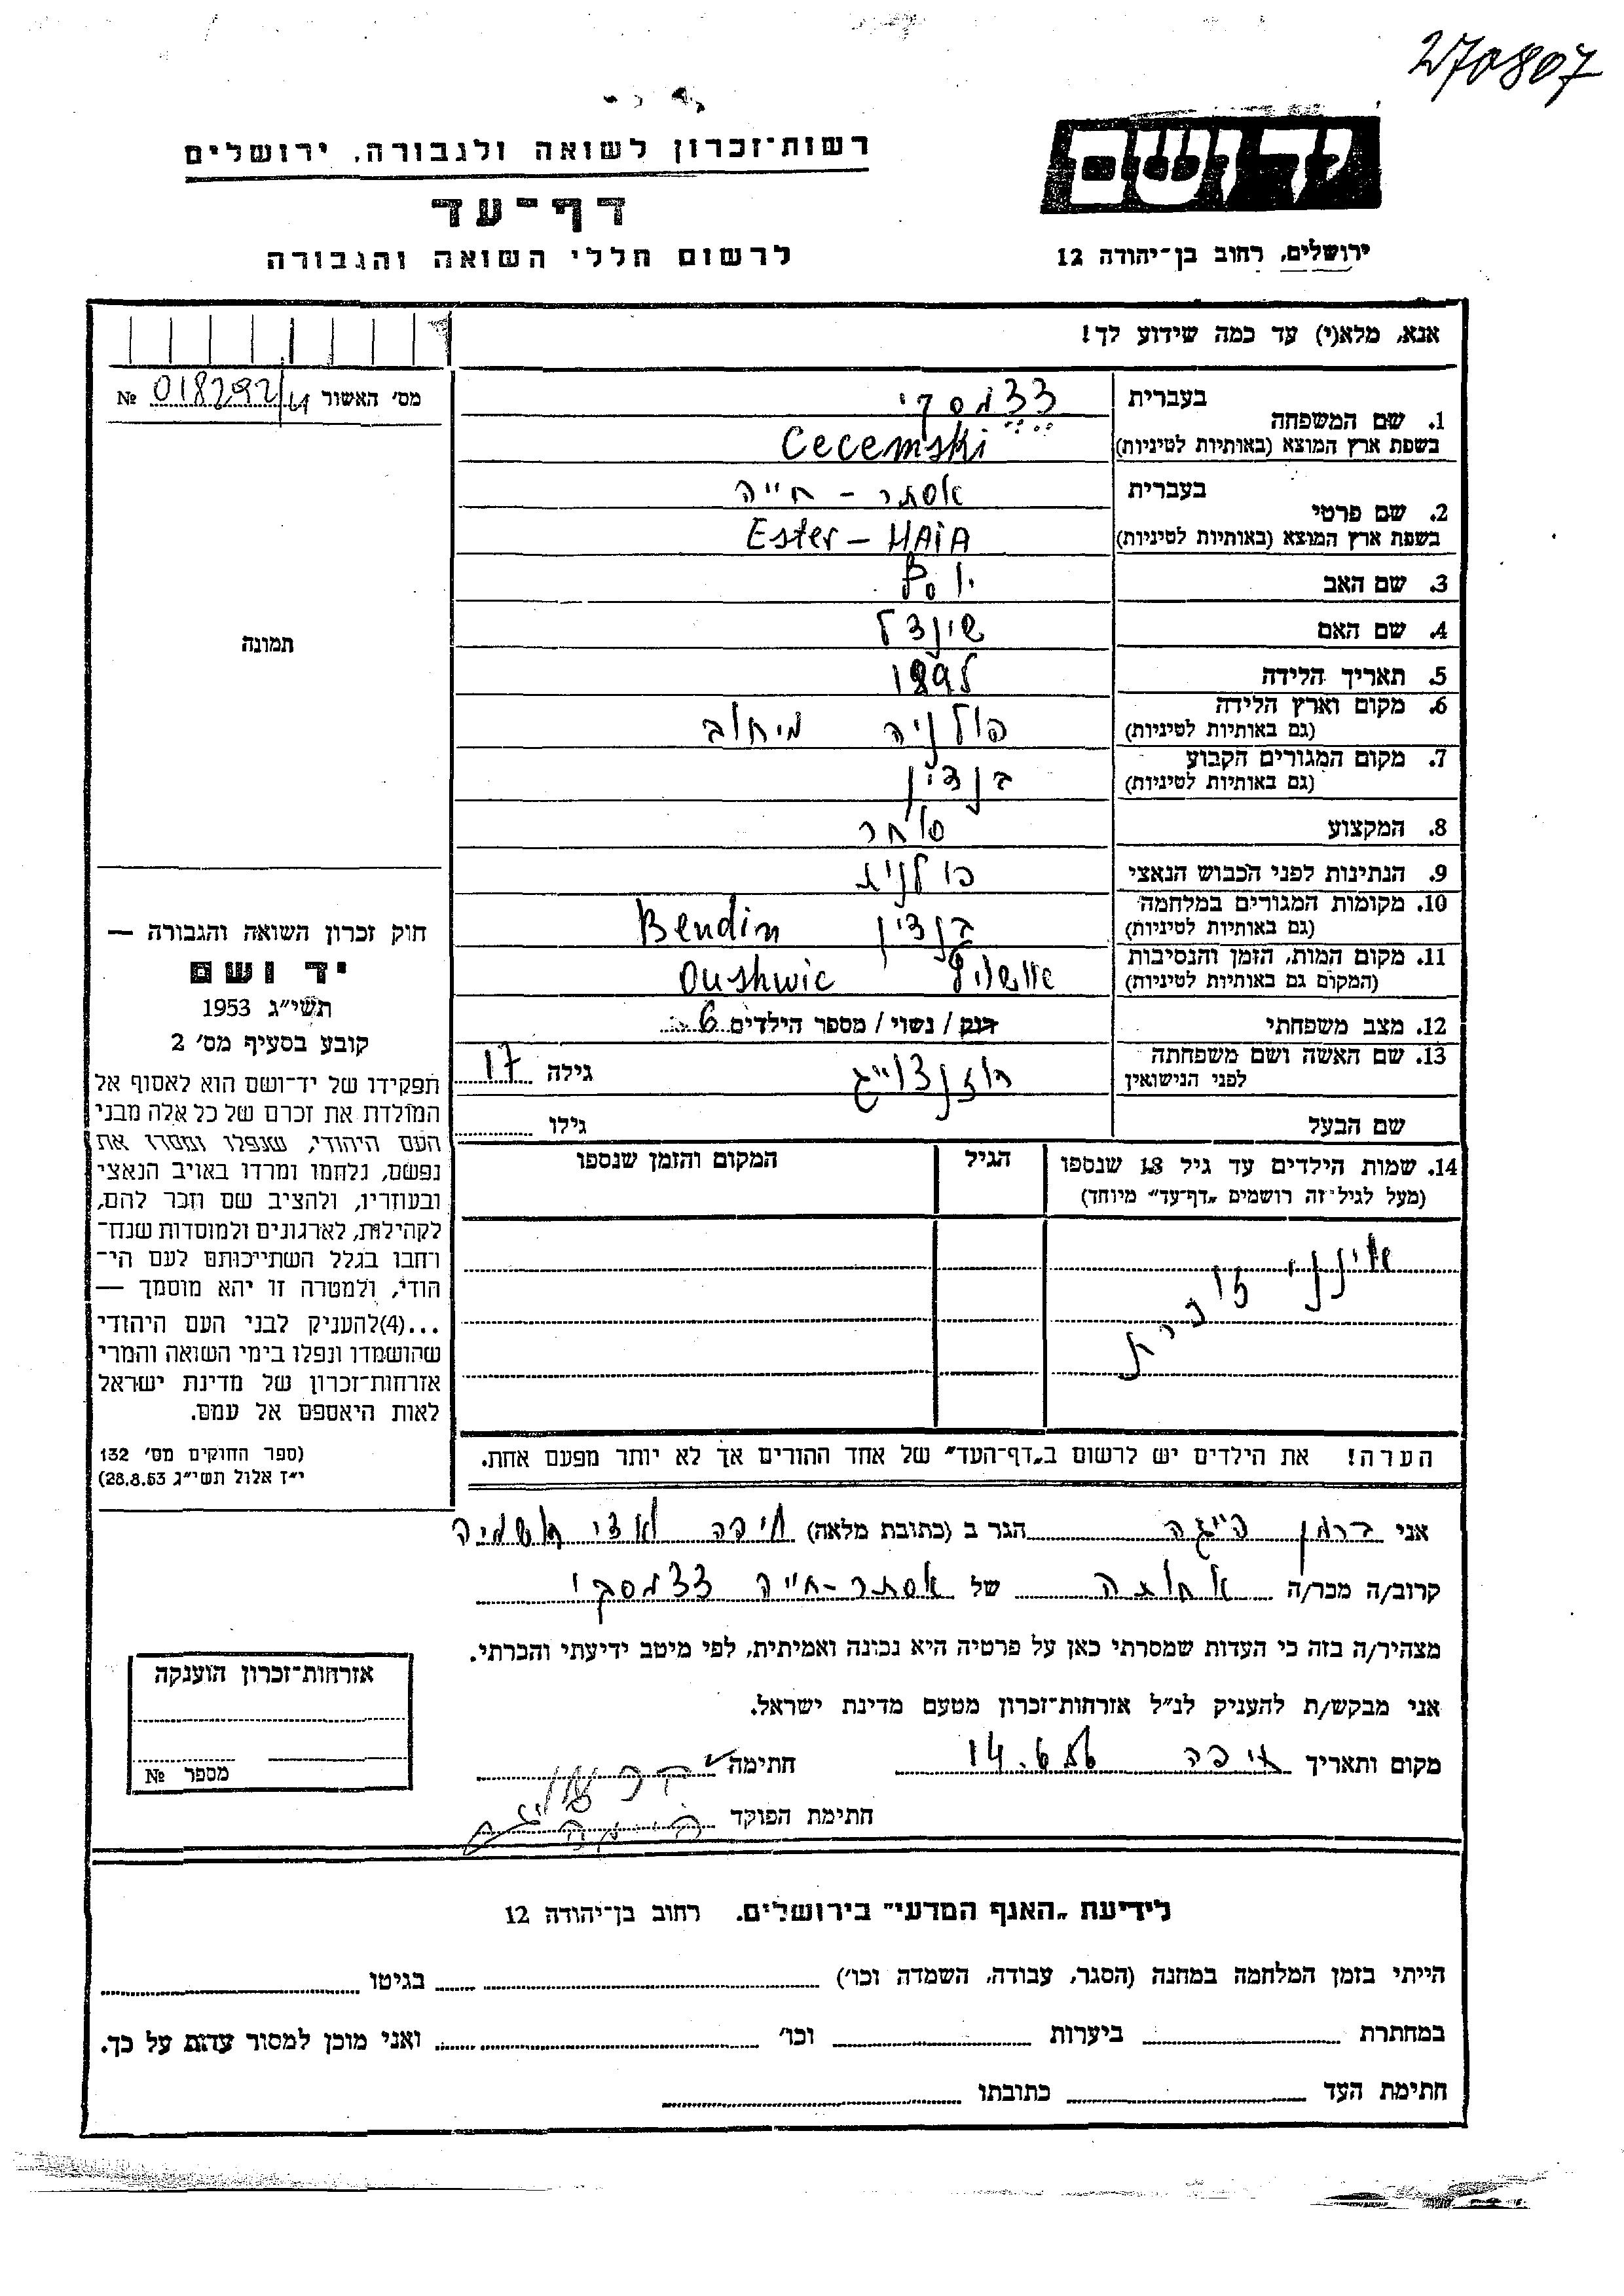 270807
יד ושם
רשות־זכרון לשואה ולגבורה, ירושלים
דף־עד
לרשום חללי השואה והגבורה
ירושלים, רחוב בן־יהודה 12
אנא, מלא(י) עד כמה שידוע לך!
מס׳ האשור 018292/4 №
1. שם המשפחה בעברית צצמסקי
בשפת ארץ המוצא (באותיות לטיניות) Cecemski
2. שם פרטי בעברית אסתר - חייה
בשפת ארץ המוצא (באותיות לטיניות) Ester - HAiA
3. שם האב יוסף
4. שם האם שינדל
5. תאריך הלידה 189
6. מקום וארץ הלידה (גם באותיות לטיניות) פולניה מיחוב
7. מקום המגורים הקבוע (גם באותיות לטיניות) בנדין
8. המקצוע סוחר
9. הנתינות לפני הכבוש הנאצי פולנית
10. מקומות המגורים במלחמה (גם באותיות לטיניות) בנדין Bendin
11. מקום המות, הזמן והנסיבות (המקום גם באותיות לטיניות) אושויץ Oushwic
12. מצב משפחתי רווק / נשוי / מספר הילדים 6
13. שם האשה ושם משפחתה לפני הנישואין רוזנצוייג גילה 17
שם הבעל גילו
14. שמות הילדים עד גיל 18 שנספו הגיל המקום והזמן שנספו
(מעל לגיל זה רושמים „דף־עד״ מיוחד)
אינני זוכרת
הערה! את הילדים יש לרשום ב„דף־העד״ של אחד ההורים אך לא יותר מפעם אחת.
תמונה
חוק זכרון השואה והגבורה —
יד ושם
תשי״ג 1953
קובע בסעיף מס׳ 2
תפקידו של יד־ושם הוא לאסוף אל
המולדת את זכרם של כל אלה מבני
העם היהודי, שנפלו ומסרו את
נפשם, נלחמו ומרדו באויב הנאצי
ובעוזריו, ולהציב שם וזכר להם,
לקהילות, לארגונים ולמוסדות שנח־
רחבו בגלל השתייכותם לעם הי־
הודי, ולמטרה זו יהא מוסמך —
...(4)להעניק לבני העם היהודי
שהושמדו ונפלו בימי השואה והמרי
אזרחות־זכרון של מדינת ישראל
לאות היאספם אל עמם.
(ספר החוקים מס׳ 132
י״ז אלול תשי״ג 28.8.53)
אני ברגן פייגה הגר ב (כתובת מלאה) חיפה
קרוב/ה מכר/ה אחותה של אסתר-חייה צצמסקי
מצהיר/ה בזה כי העדות שמסרתי כאן על פרטיה היא נכונה ואמיתית, לפי מיטב ידיעתי והכרתי.
אני מבקש/ת להעניק לנ״ל אזרחות־זכרון מטעם מדינת ישראל.
מקום ותאריך חיפה 14.6.56 חתימה
חתימת הפוקד
אזרחות־זכרון הוענקה
מספר №
לידיעת „האגף המדעי״ בירושלים. רחוב בן־יהודה 12
הייתי בזמן המלחמה במחנה (הסגר, עבודה, השמדה וכו׳) בגיטו
במחתרת ביערות וכו׳ ואני מוכן למסור עדות על כך.
חתימת העד כתובתו